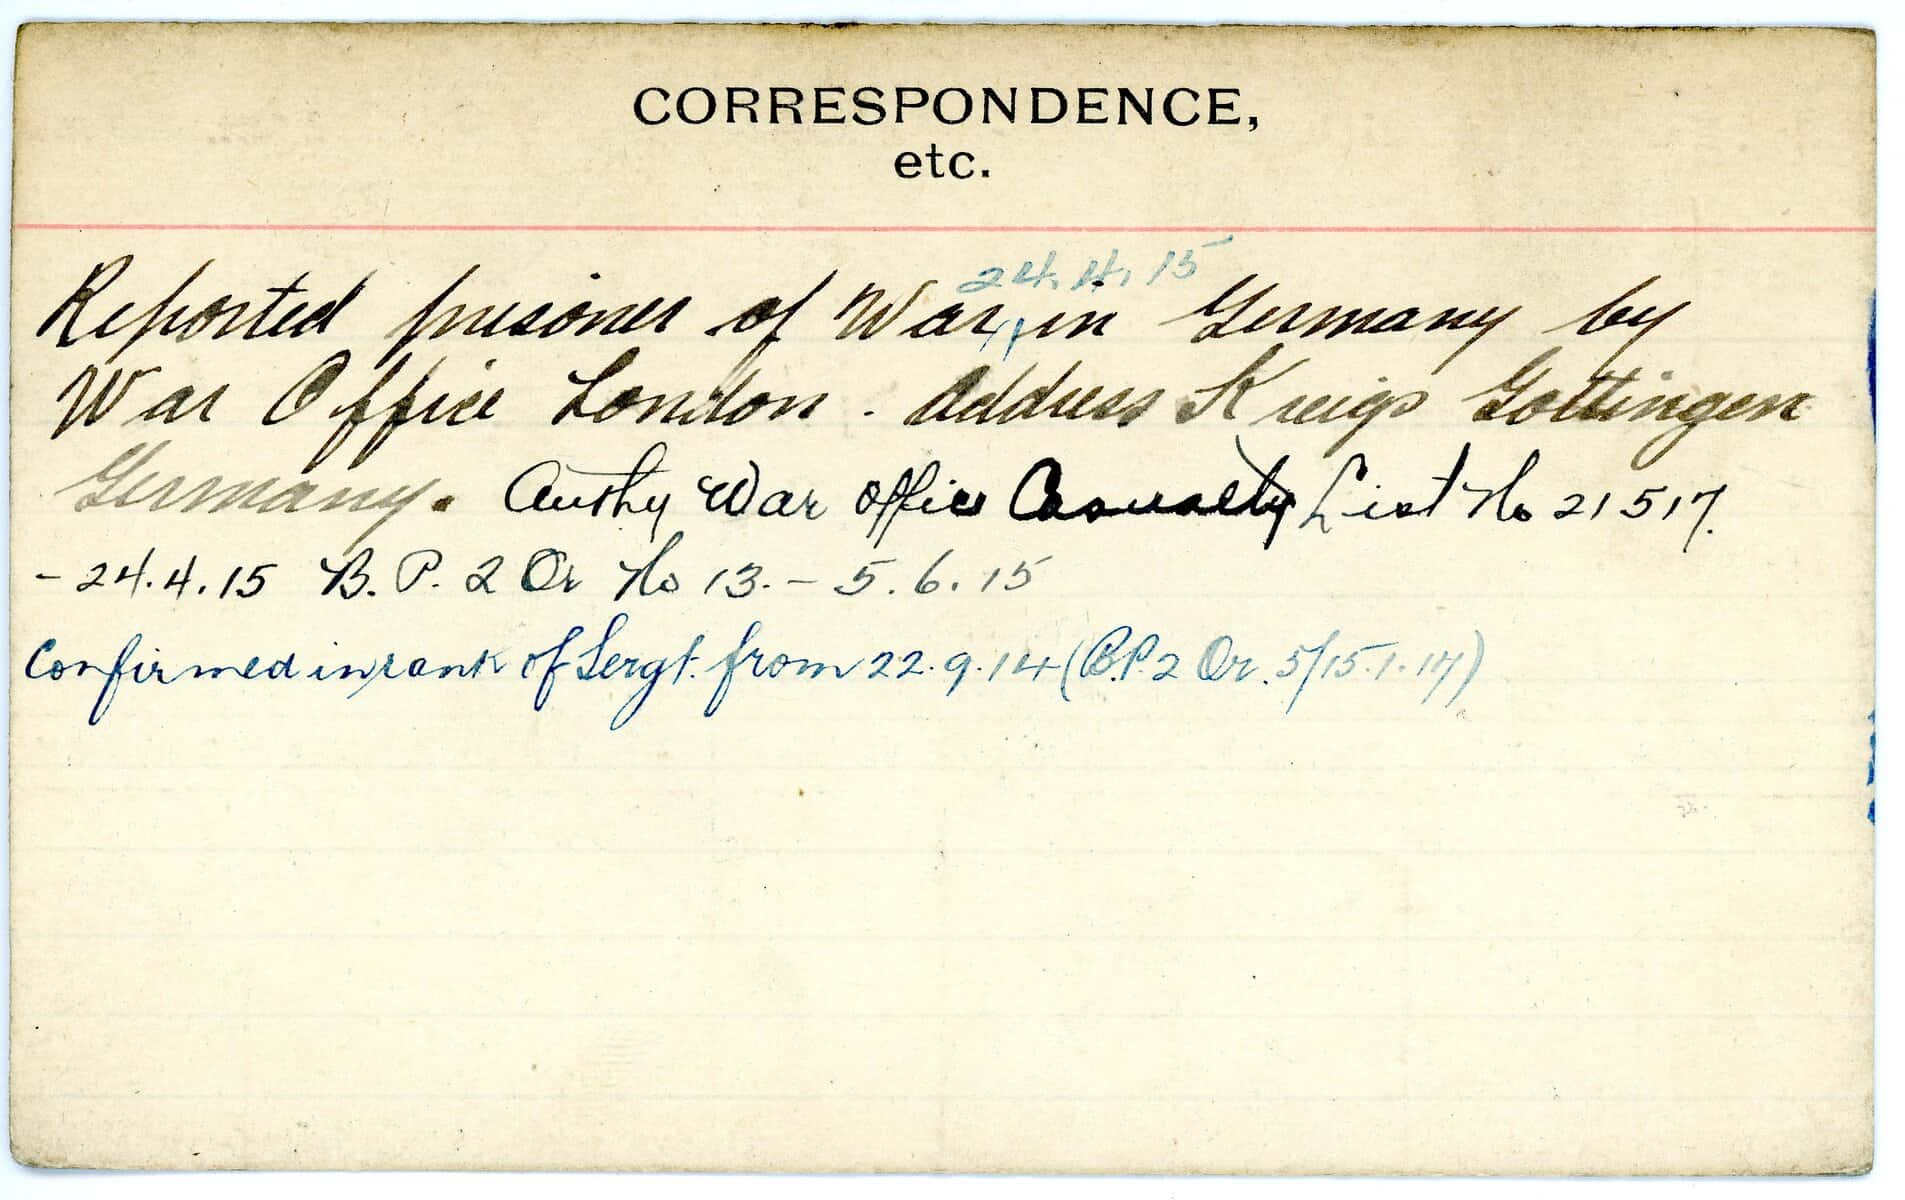 CORRESPONDENCE,
etc.
24.4.15
Reported prisoner of War, in Germany by
War Office London. Address Kreigs Gottingen
Germany. Authy War Office Casualty List No 21517.
- 24.4.15 B. P. 2 Or No 13. - 5.6.15
Confirmed in rank of Sergt. from 22.9.14 (B.P. 2 Or. 5/15.1.17)